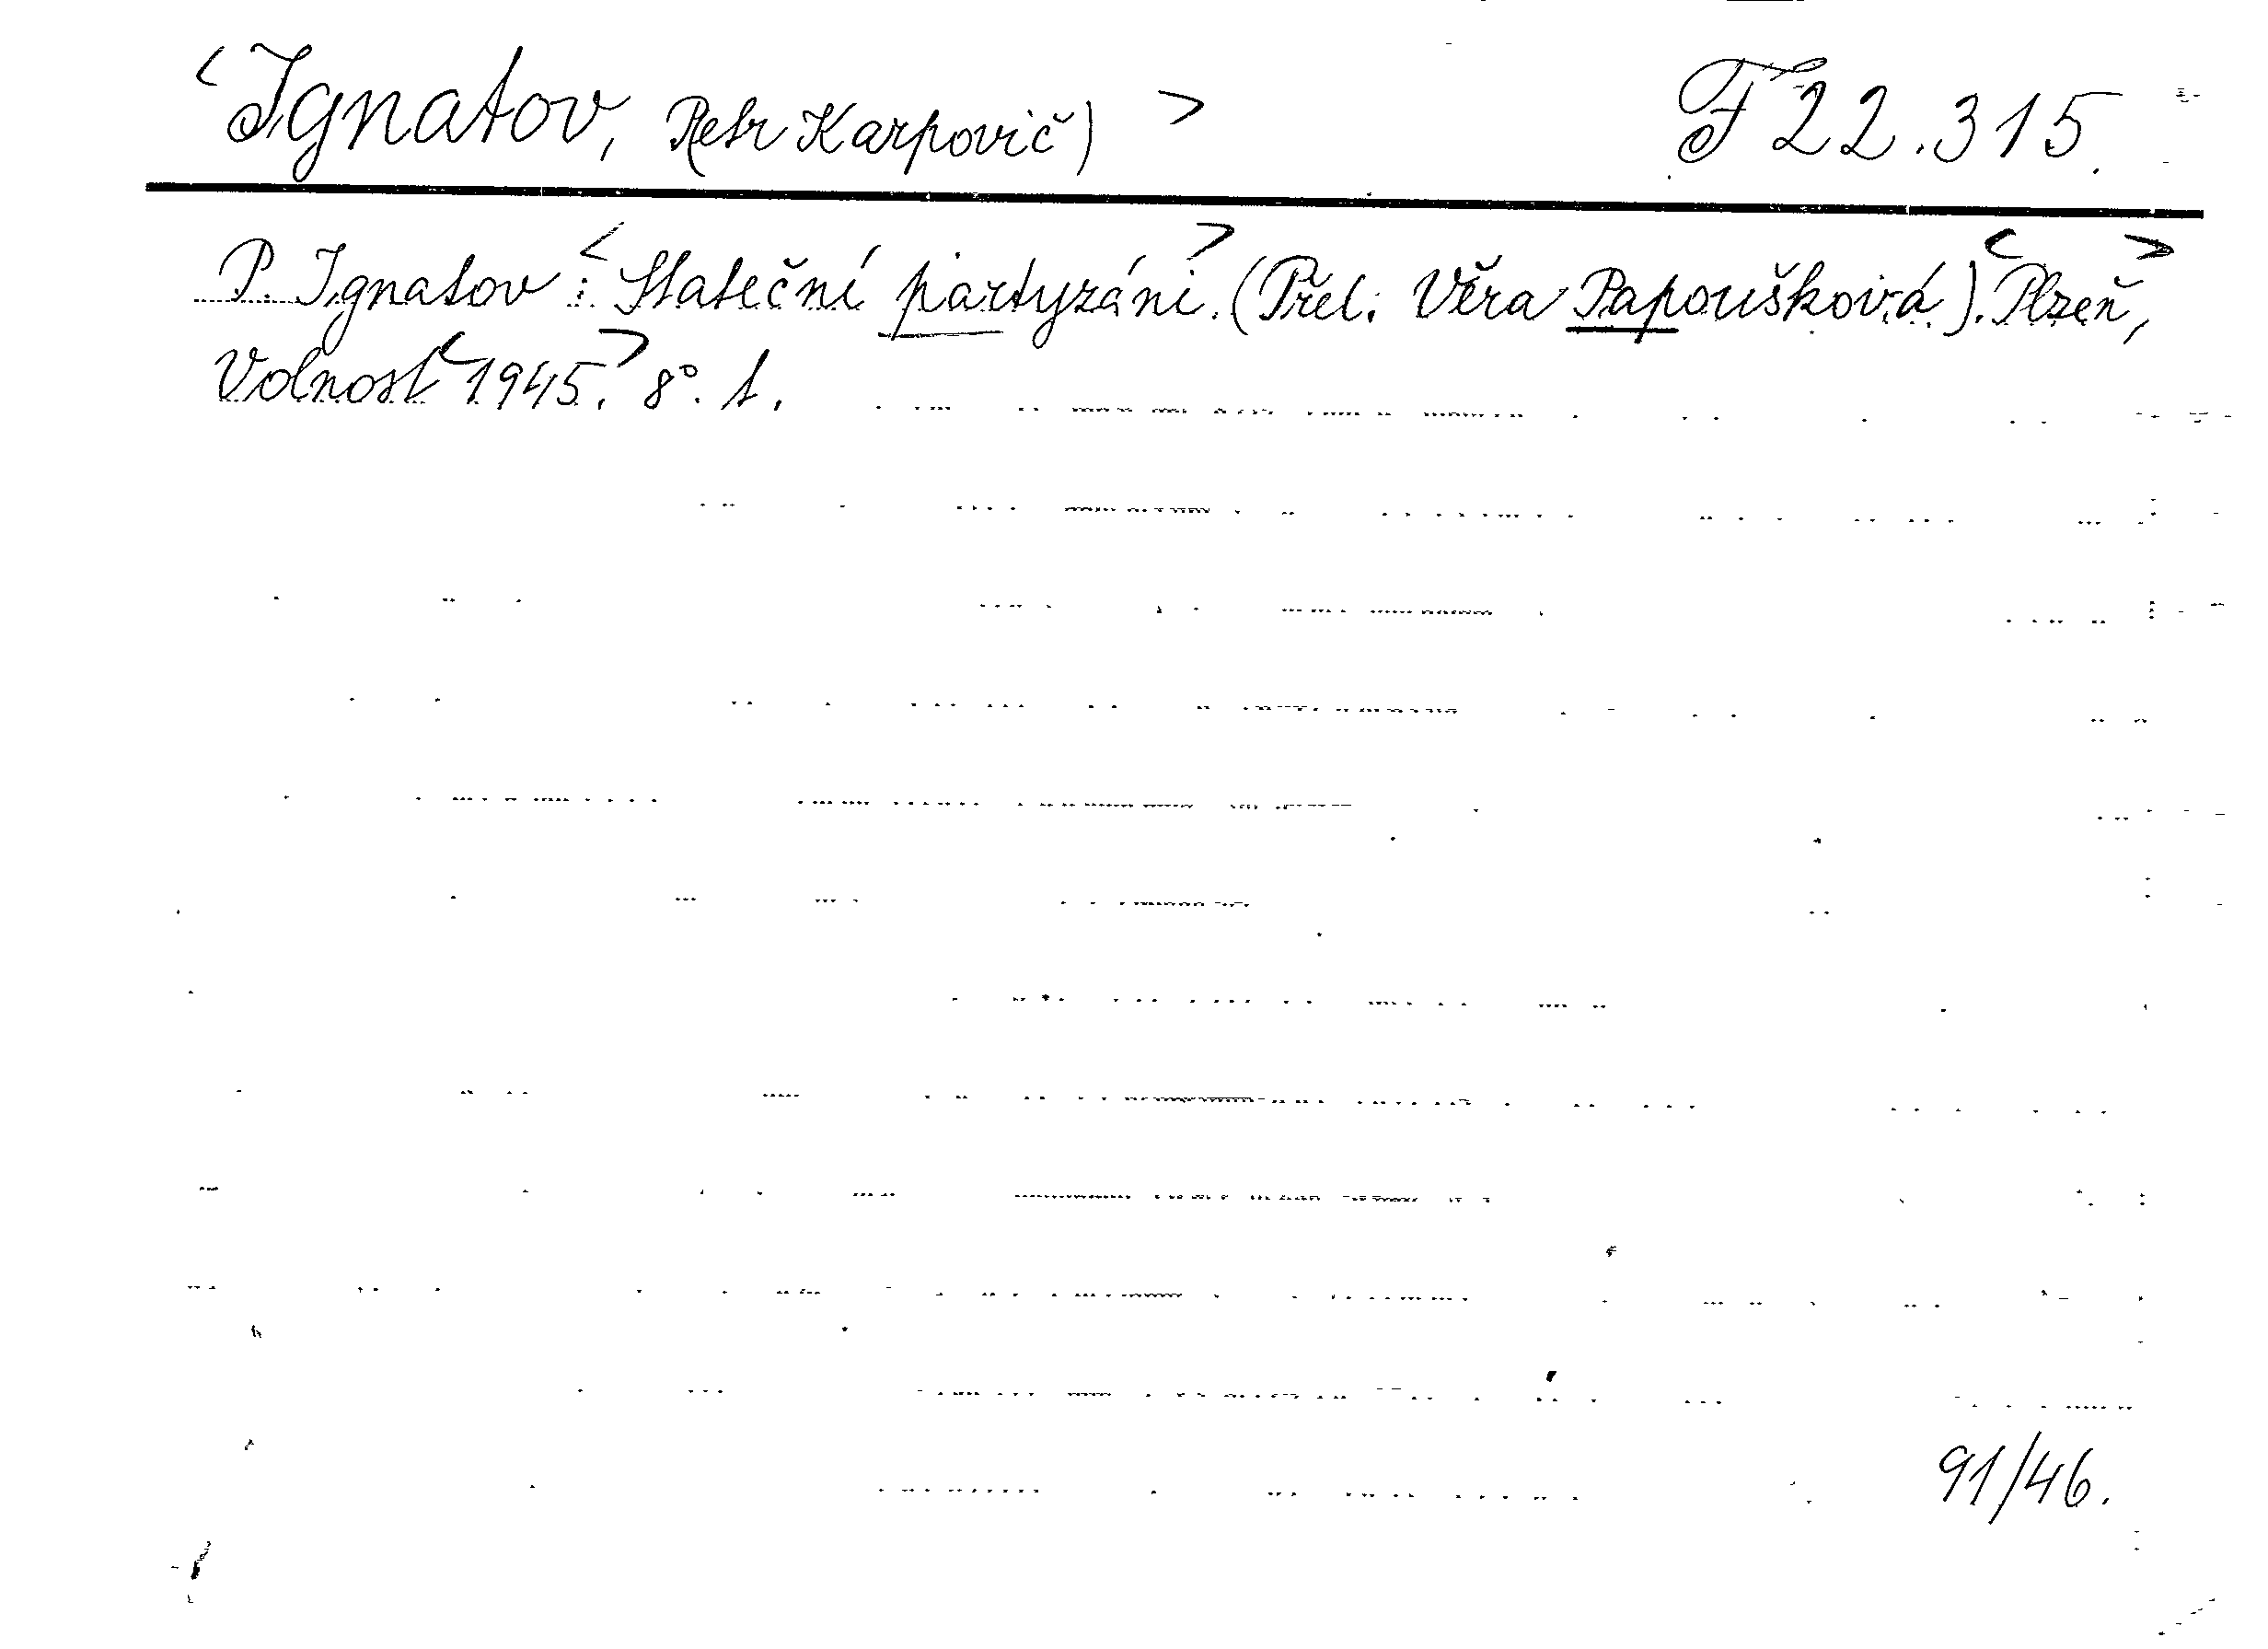 <Ignatov, P(etr Karpovič) > F 22.315.
P. Ignatov : <Stateční partyzáni>. (Přel. Věra Papoušková). <Plzeň>,
Volnost <1945.> 8°. 1.
91/46.